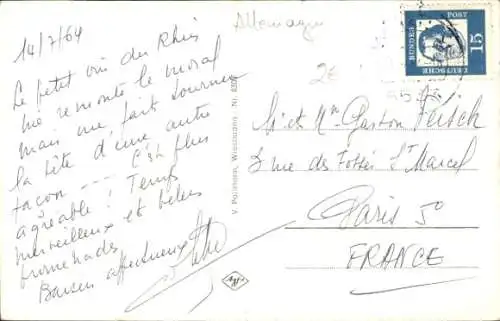 14/7/64
Le petit vin du Rhin
me remonte le moral
mais me fait tourner
la tête d'une autre
façon --- C'est plus
agréable! Temps
merveilleux et belles
promenades
Baisers affectueux
Allemagne
BUNDES POST
DEUTSCHE
15
V. Pollmann, Wiesbaden. Nr.
M. et Mme Gaston
2 rue des Fossés St Marcel
Paris 5e
FRANCE